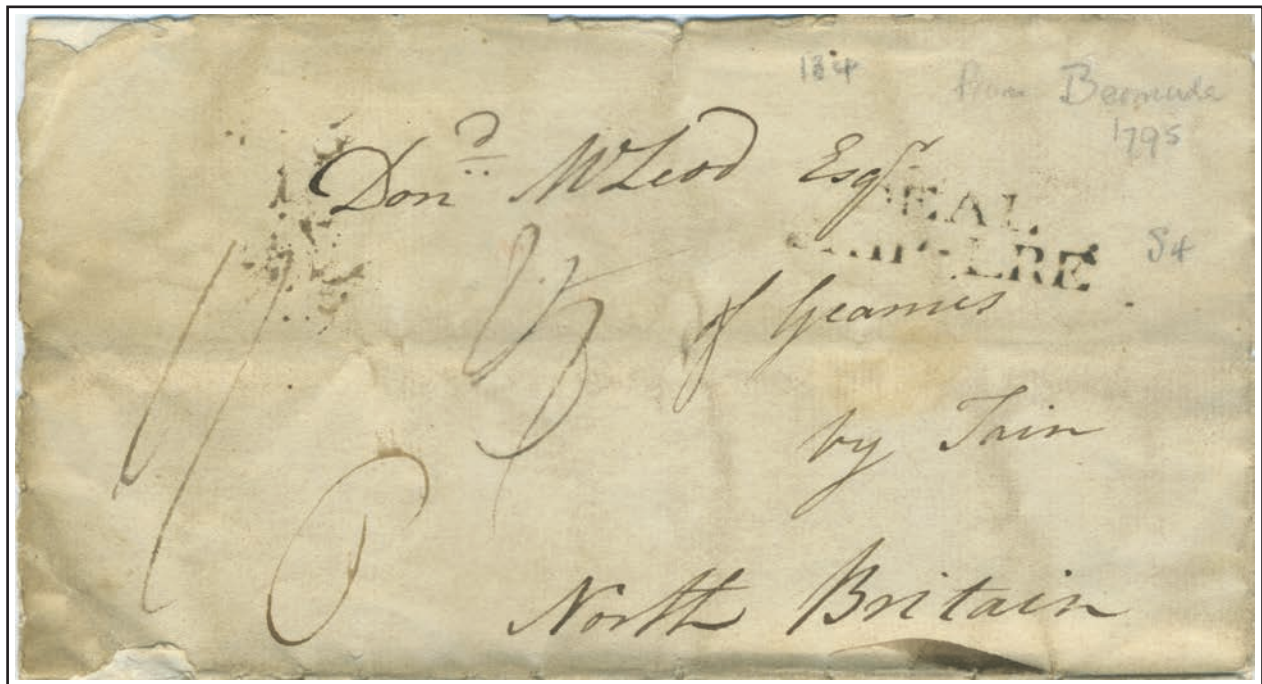 184
from Bermuda
1795
Donᵈ McLeod Esqʳ
DEAL
SHIP-LRE
84
of Geanies
by Tain
North Britain